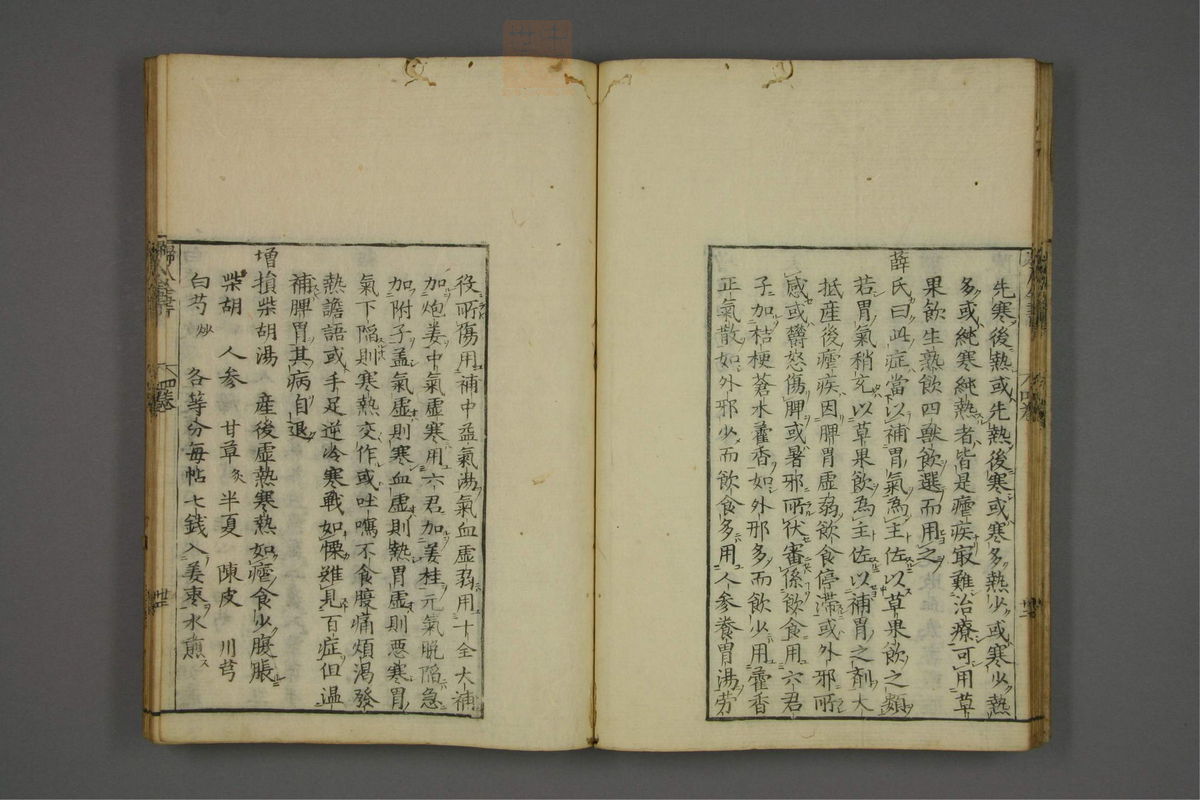 先寒後熱或先熱後寒或寒多熱少或寒少熱
多或純寒純熱者皆是瘧疾冣難治療可用草
果飲生熟飲四獸飲選而用之
薛氏曰此症當以補胃氣為主佐以草果飲之類
若胃氣稍充以草果飲為主佐以補胃之剤大
抵産後瘧疾因脾胃虚弱飲食停滯或外邪所
感或欝怒傷脾或暑邪所伏審係飲食用六君
子加桔梗蒼朮藿香如外邪多而飲少用藿香
正氣散如外邪少而飲食多用人参養胃湯劳
役所傷用補中益氣湯氣血虚弱用十全大補
加炮姜中氣虚寒用六君加姜桂元氣脱陥急
加附子盖氣虚則寒血虚則熱胃虚則悪寒胃
氣下陥則寒熱交作或吐嘔不食腹痛煩渇發
熱譫語或手足逆冷寒戰如慄雖見百症但温
補脾胃其病自退
増損柴胡湯　産後虚熱寒熱如瘧食少腹脹
柴胡　人参　甘草炙　半夏　陳皮　川芎
白芍炒　各等分毎帖七銭入姜棗水煎
四巻